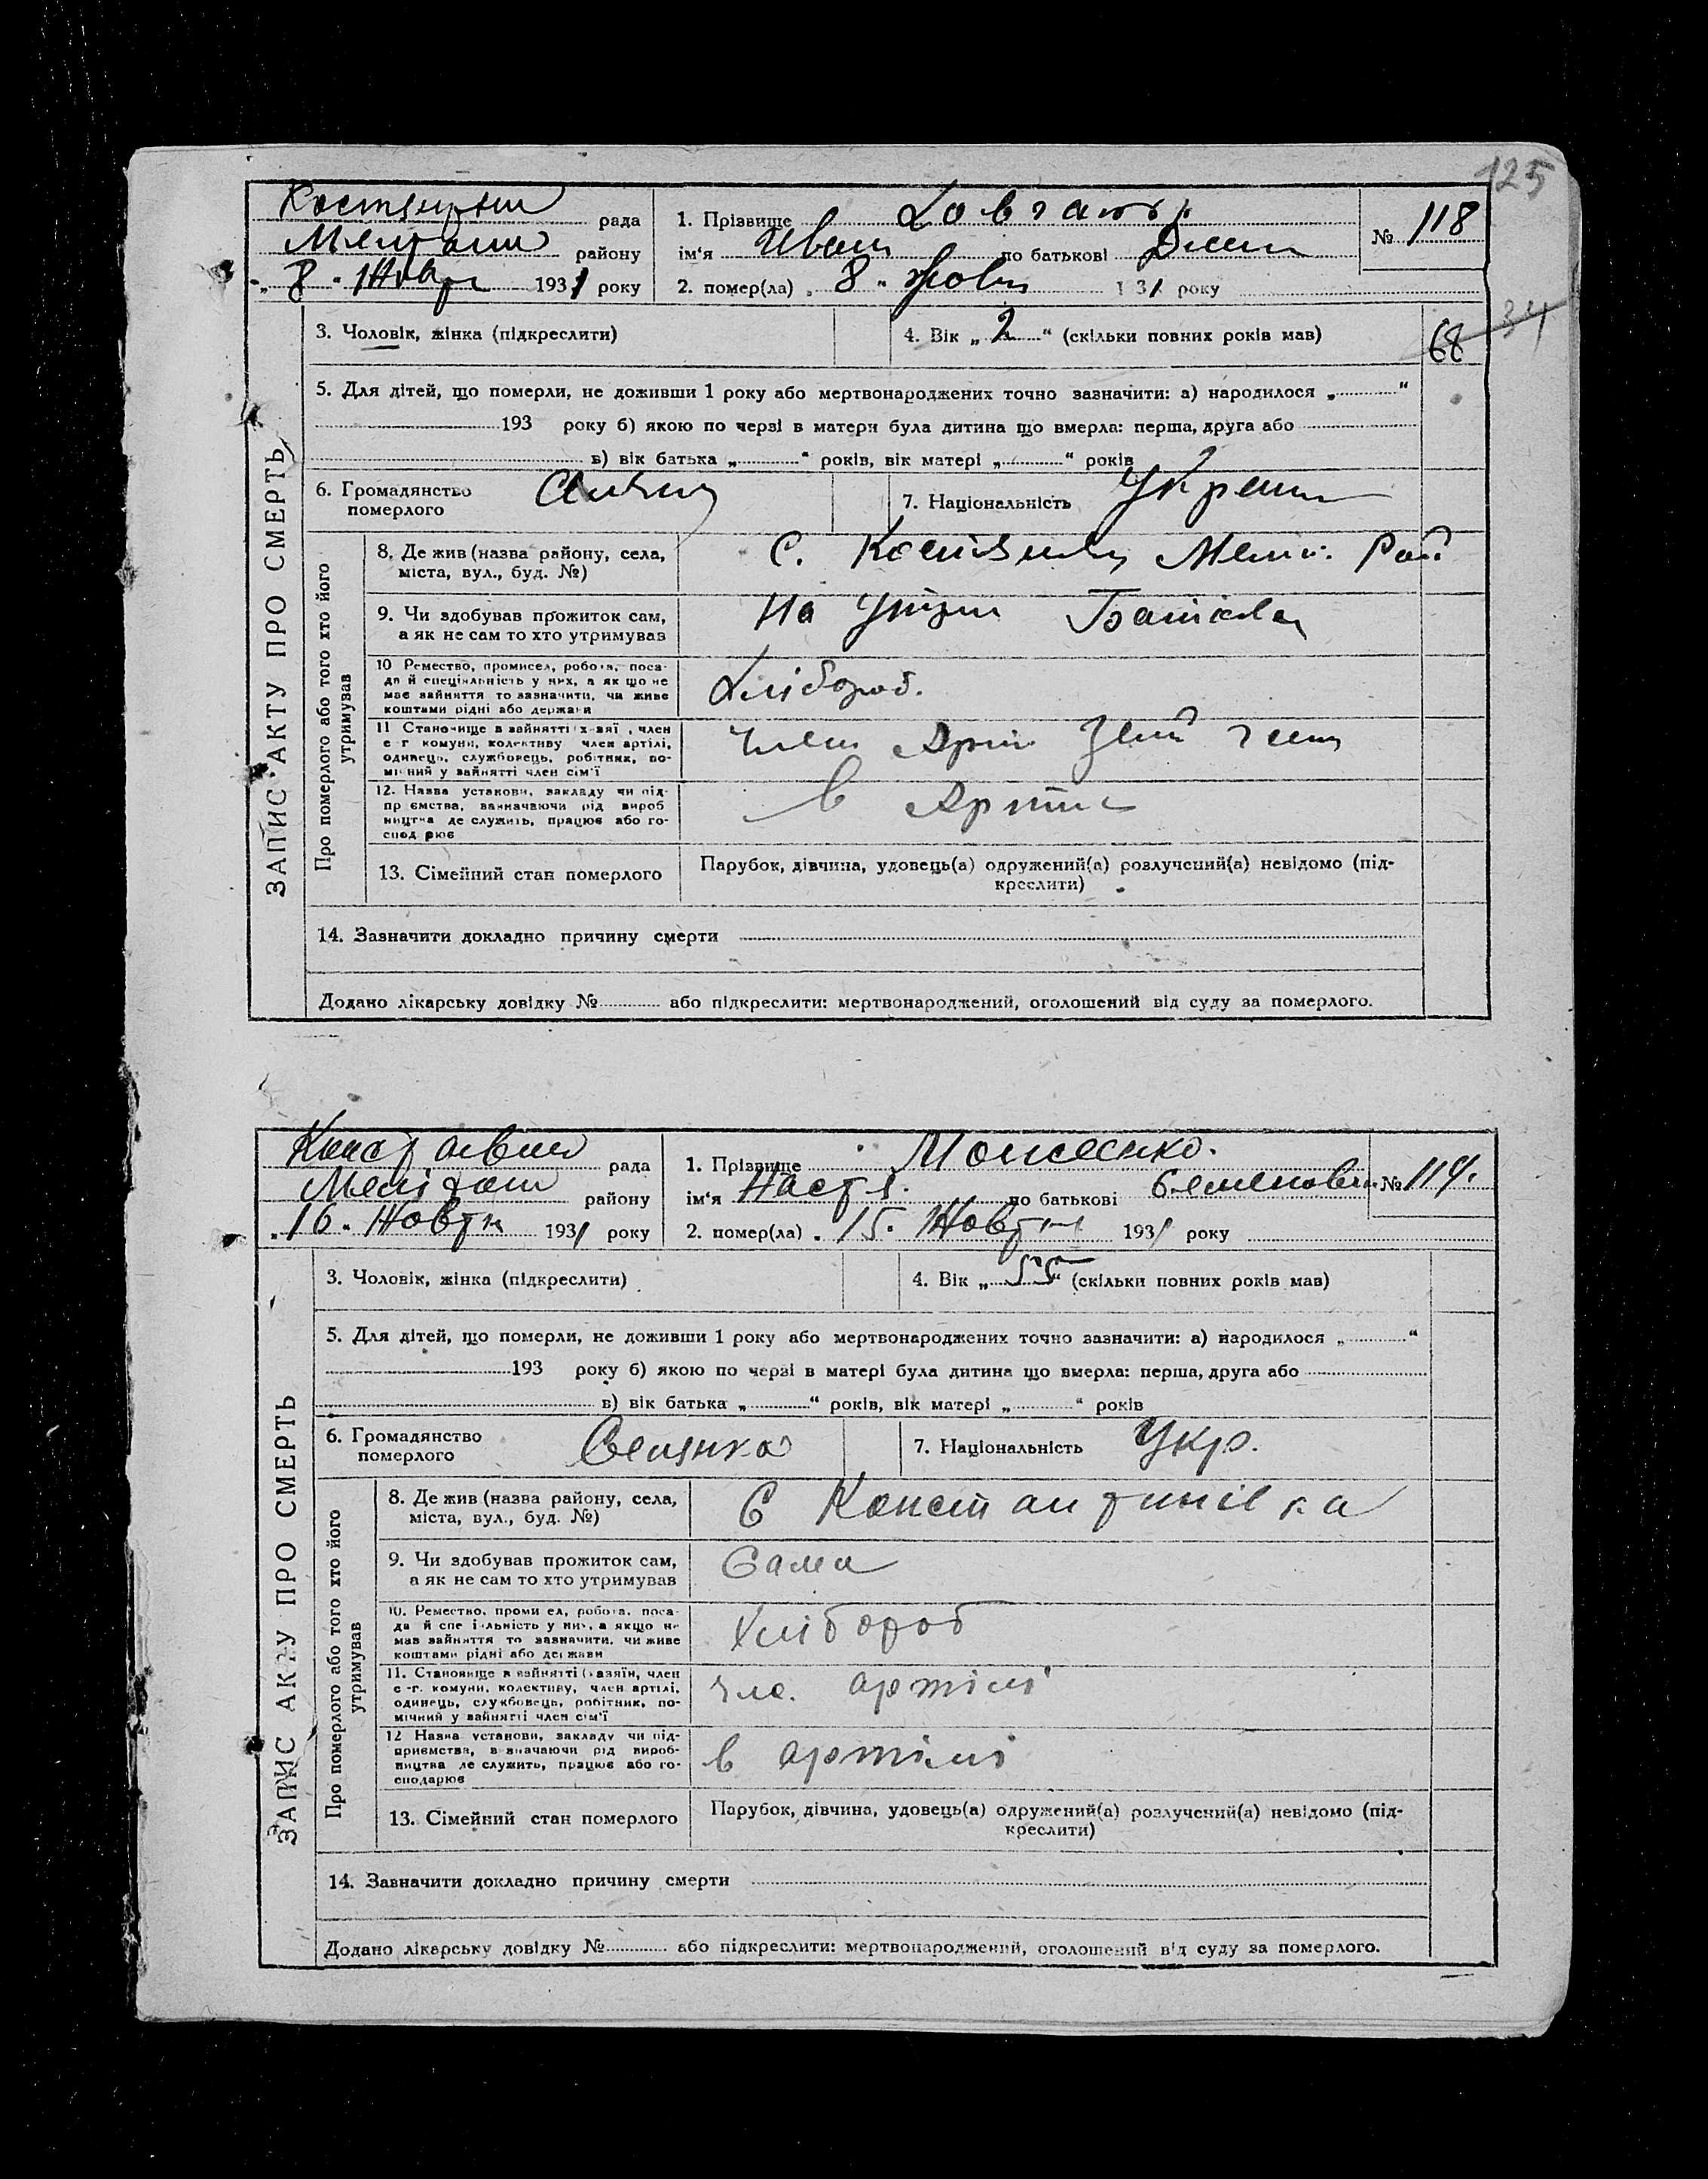 125
рада
1. Прізвище
№ 118
Мелітоп району
ім'я Иван по батькові
„ 8 " 1931 року
2. помер(ла) „ 8 " 31 року
ЗАПИС АКТУ ПРО СМЕРТЬ
3. Чоловік, жінка (підкреслити)
4. Вік „ 2 “ (скільки повних років мав)
68 34
5. Для дітей, що померли, не доживши 1 року або мертвонароджених точно зазначити: а) народилося „ “
193 року б) якою по черзі в матери була дитина що вмерла: перша, друга або
в) вік батька „ “ років, вік матері „ “ років
6. Громадянство
померлого
7. Національність Украин
Про померлого або того хто його
утримував
8. Де жив (назва району, села,
міста, вул., буд. №)
С. Мелит. Рай
9. Чи здобував прожиток сам,
а як не сам то хто утримував
На Утрим Батькове
10 Ремество, промисел, робота, поса-
да й спеціяльність у них, а як що не
має зайняття то зазначити, чи живе
коштами рідні або держави
Хлібороб.
11 Становище в зайнятті х-зяї , член
с г комуни, колективу член артілі,
одинець, службовець, робітник, по-
мічний у зайнятті член сім'ї
член Арті
12. Назва установи, закладу чи під-
пр ємства, зазначаючи рід вироб
ництва де служить, працює або го-
спод рює
в Артил
13. Сімейний стан померлого
Парубок, дівчина, удовець(а) одружений(а) розлучений(а) невідомо (під-
креслити)
14. Зазначити докладно причину смерти
Додано лікарську довідку № або підкреслити: мертвонароджений, оголошений від суду за померлого.
рада
1. Прізвище Моисеенко.
Мелітоп району
ім'я Настя. по батькові Семеновн № 119.
„ 16 " Жовтн 1931 року
2. помер(ла) „ 15. Жовтн 1931 року
ЗАПИС АКТУ ПРО СМЕРТЬ
3. Чоловік, жінка (підкреслити)
4. Вік „ 55 “ (скільки повних років мав)
5. Для дітей, що померли, не доживши 1 року або мертвонароджених точно зазначити: а) народилося „ “
193 року б) якою по черзі в матері була дитина що вмерла: перша, друга або
в) вік батька „ “ років, вік матері „ “ років
6. Громадянство
померлого
Селянка
7. Національність Укр.
Про померлого або того хто його
утримував
8. Де жив (назва району, села,
міста, вул., буд. №)
С Константинівка
9. Чи здобував прожиток сам,
а як не сам то хто утримував
Сама
10. Ремество, проми ел, робота, поса-
да й спе і льність у них, а якщо не
мав зайняття то зазначити, чи живе
коштами рідні або держави
Хлібороб
11. Становище в зайнятті (хазяїн, член
с -г. комуни, колективу, член артілі,
одинець, службовець, робітник, по-
мічний у зайнятті член сім'ї
чле. артілі
12 Назва установи, закладу чи під-
приємства, зазначаючи рід вироб-
ництва де служить, працює або го-
сподарює
в артілі
13. Сімейний стан померлого
Парубок, дівчина, удовець(а) одружений(а) розлучений(а) невідомо (під-
креслити)
14. Зазначити докладно причину смерти
Додано лікарську довідку № або підкреслити: мертвонароджений, оголошений від суду за померлого.